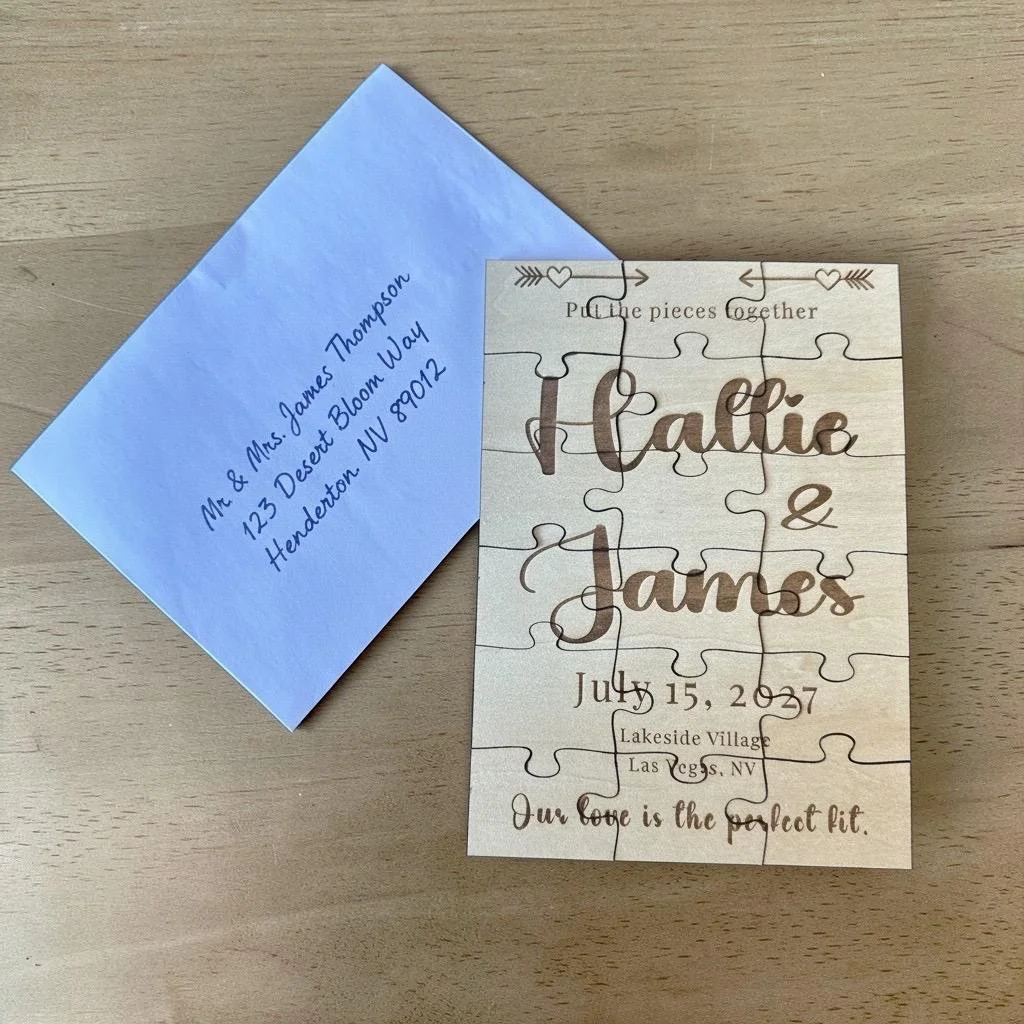 Mr. & Mrs. James Thompson
123 Desert Bloom Way
Henderton NV 89012
Put the pieces together
Hallie
&
James
July 15, 2027
Lakeside Village
Las Vegas, NV
Our love is the perfect fit.